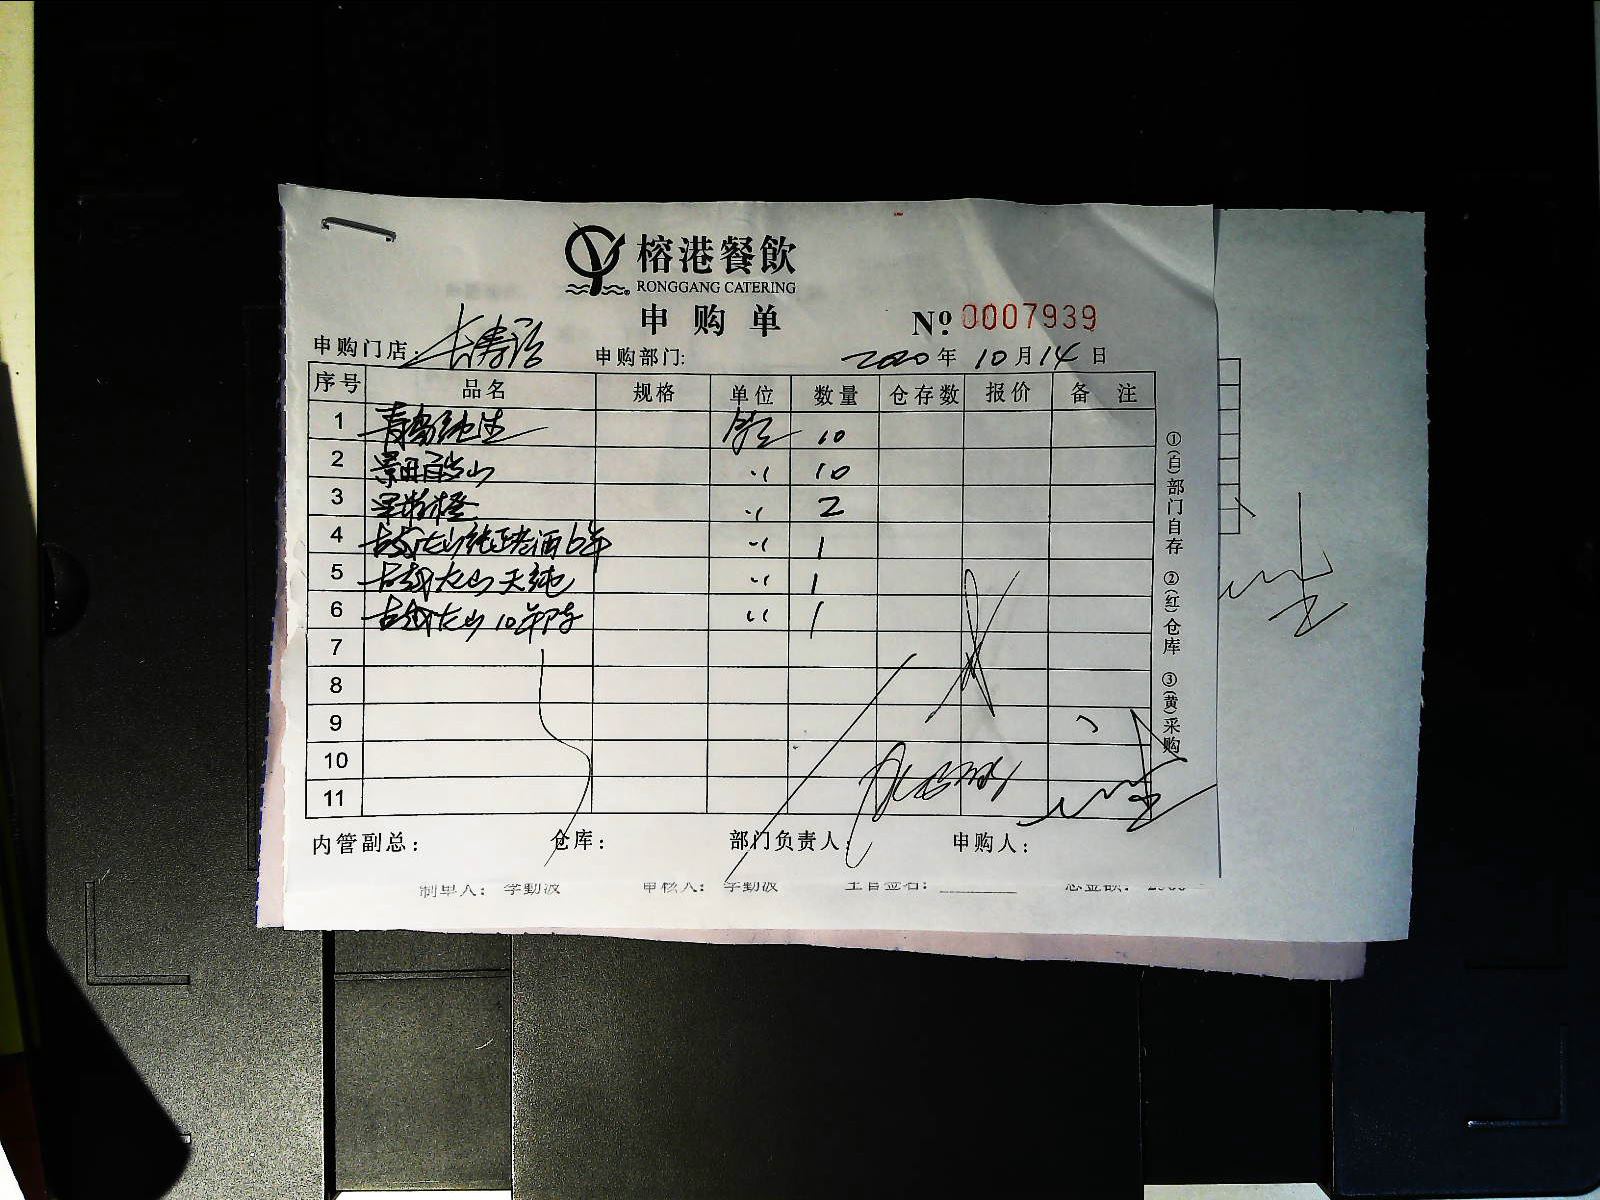 榕港餐飲
RONGGANG CATERING
申购单
№ 0007939
申购门店: 长寿路 申购部门: 2020年 10月14日
序号 品名 规格 单位 数量 仓存数 报价 备注
1 青岛纯生 箱 10
2 景田百岁山 〃 10
3 果粒橙 〃 2
4 古越龙山纯正老酒6年 〃 1
5 古越龙山天纯 〃 1
6 古越龙山10年陈 〃 1
7
8
9
10
11
①(自)部门自存 ②(红)仓库 ③(黄)采购
内管副总: 仓库: 部门负责人: 申购人:
制单人: 李勤波 审核人: 李勤波 主管签名: 总金额: